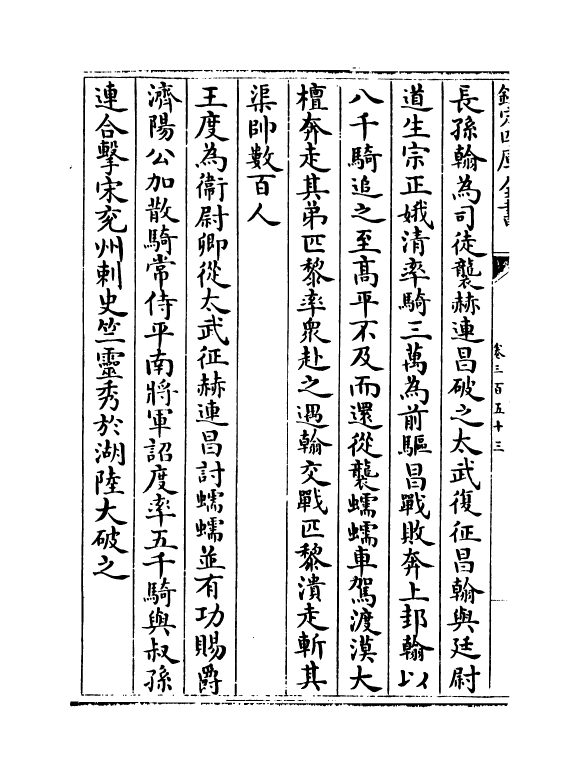 欽定四庫全書
卷三百五十三
長孫翰為司徒襲赫連昌破之太武復征昌翰與廷尉
道生宗正娥清率騎三萬為前驅昌戰敗奔上邽翰以
八千騎追之至髙平不及而還從襲蠕蠕車駕渡漠大
檀奔走其弟匹黎率衆赴之遇翰交戰匹黎潰走斬其
渠帥數百人
王度為衞尉卿從太武征赫連昌討蠕蠕並有功賜爵
濟陽公加散騎常侍平南將軍詔度率五千騎與叔孫
連合擊宋兖州刺史竺靈秀於湖陸大破之